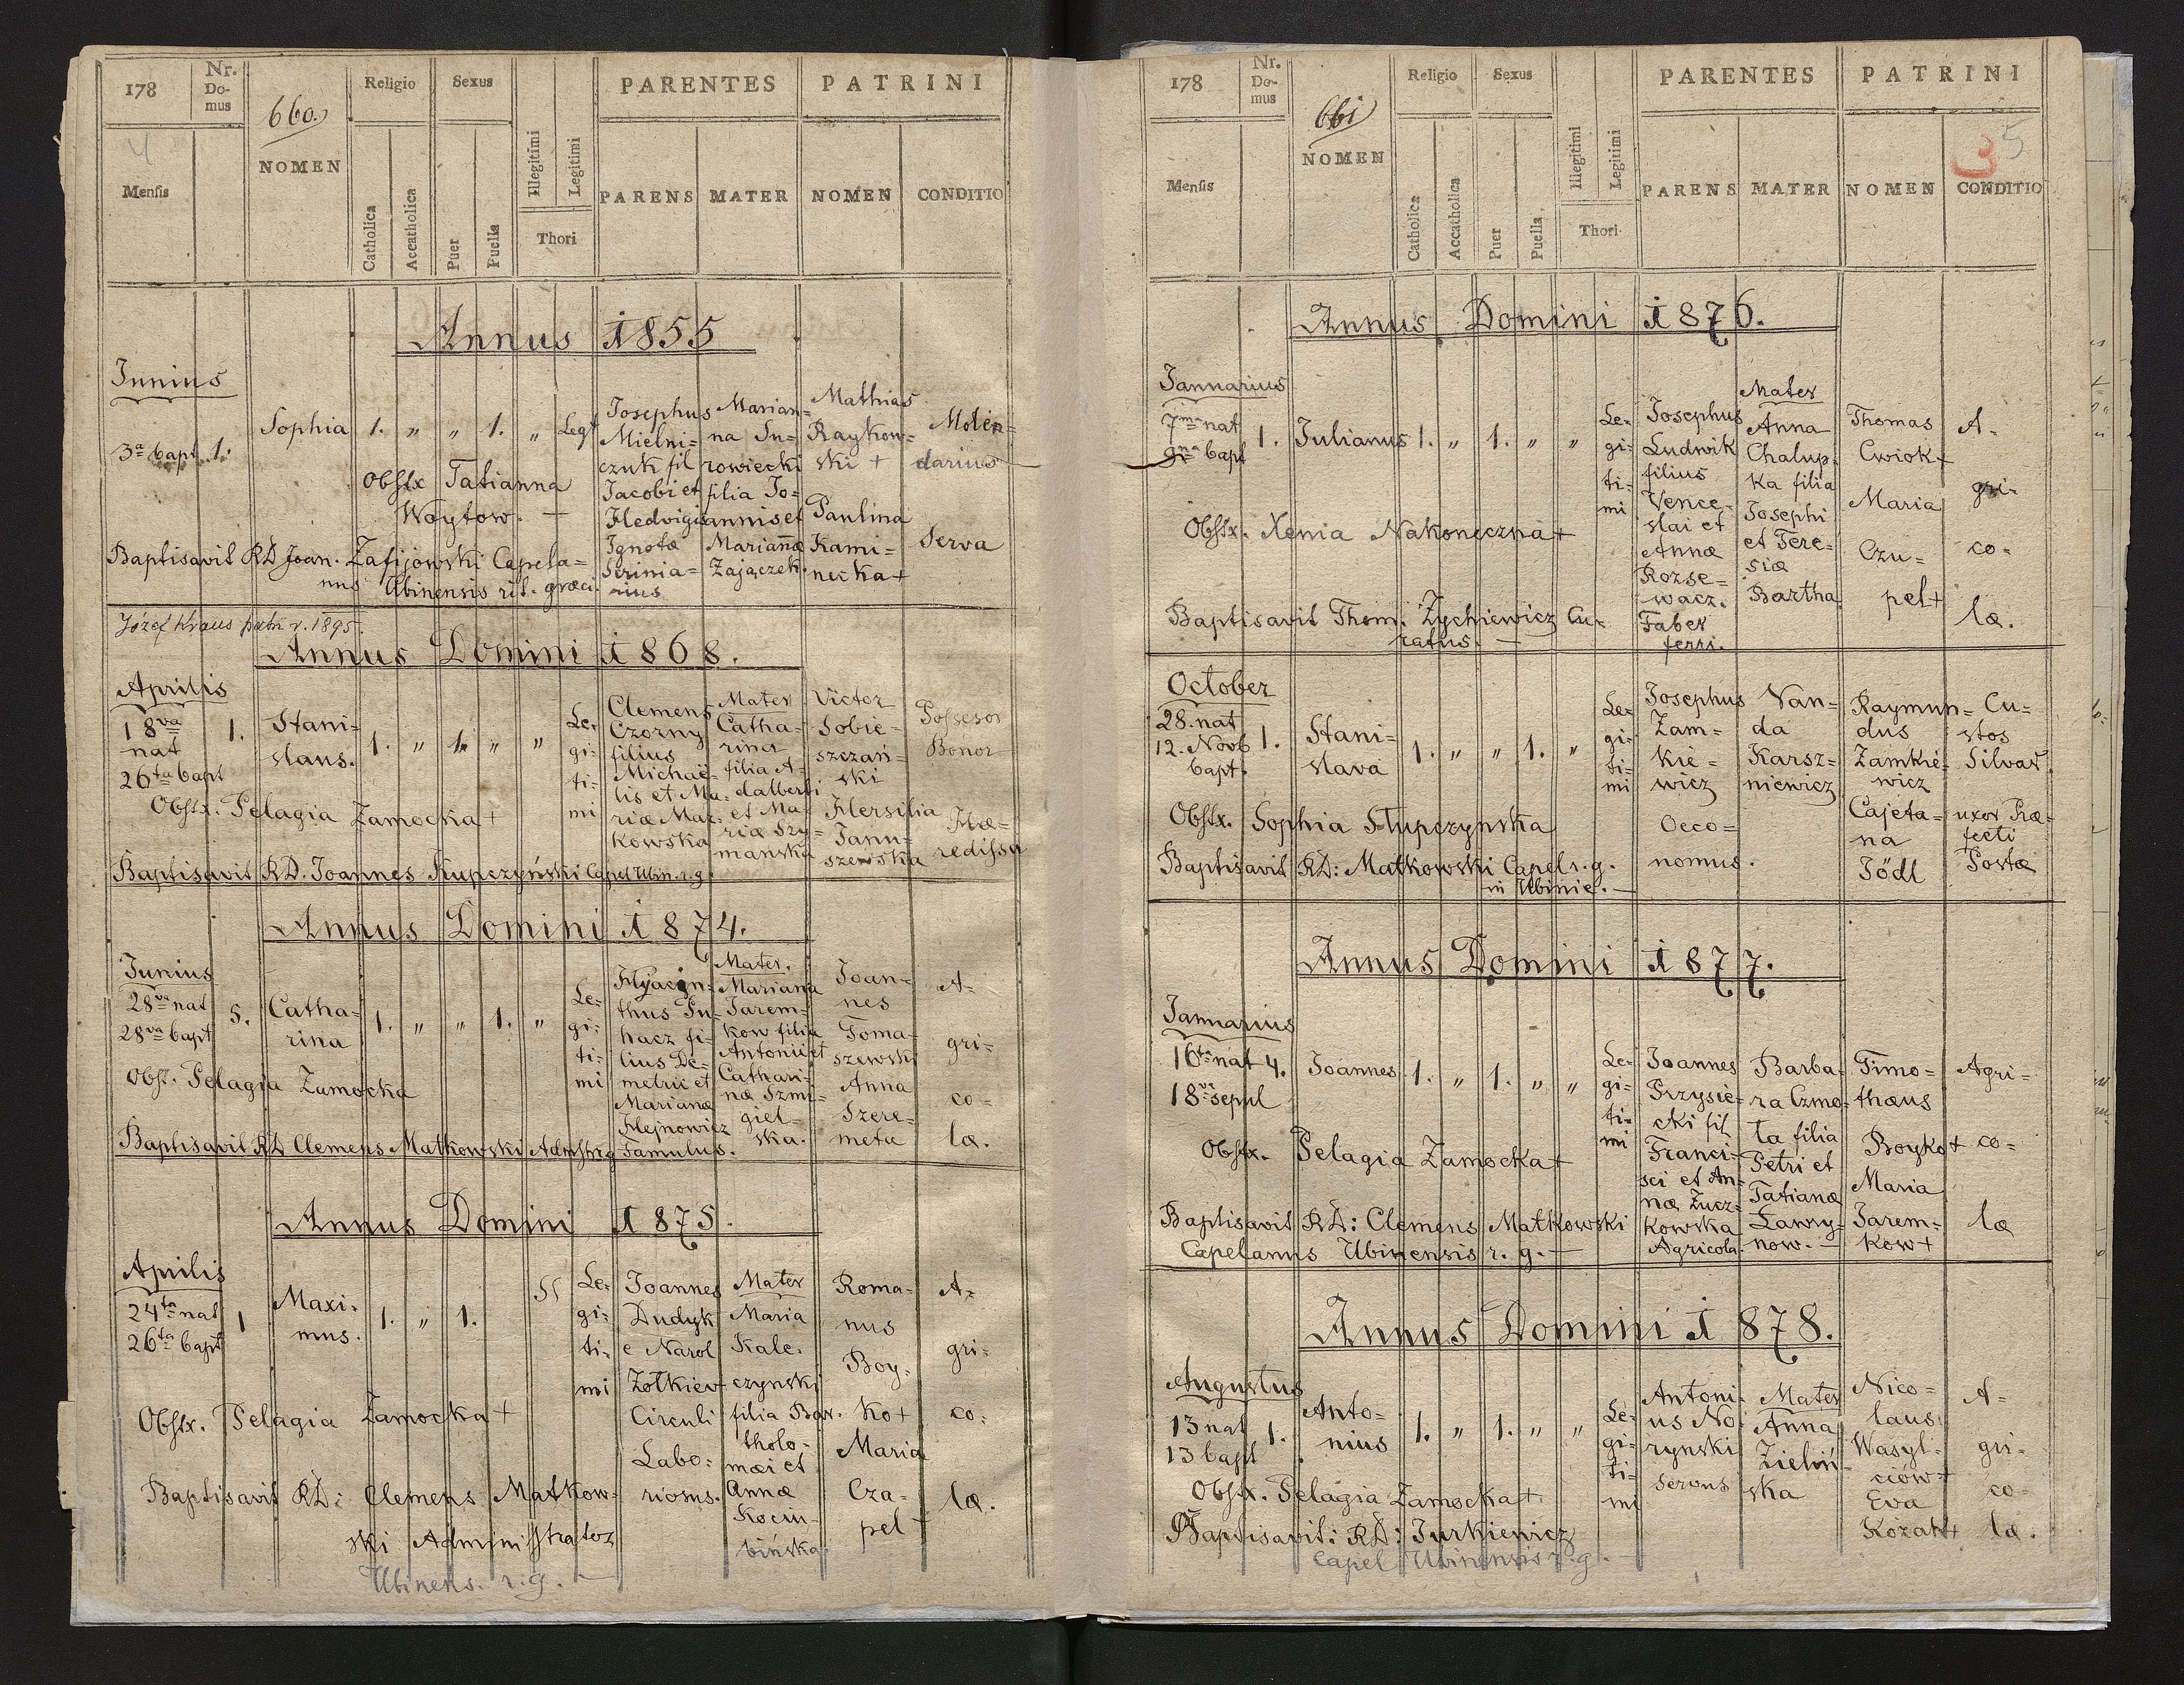 178
Nr. Domus
660.
NOMEN
Religio
Sexus
PARENTES
PATRINI
4
Mensis
Catholica
Accatholica
Puer
Puella
Illegitimi
Legitimi
Thori
PARENS
MATER
NOMEN
CONDITIO
Annus 1855
Junius
3a bapt. 1.
Sophia 1. " " 1. " Legt
Josephus
Mielni=
czuk fil
Jacobi et
Hedvigis
Ignotæ
Scrinia=
rius
Marian=
na Su=
rowiecki
filia Jo=
annis et
Mariannæ
Zajączek.
Mathias
Raykow=
ski +
Paulina
Kami=
necka+
Molen=
darius
Serva
Obstx Tatianna
Woytow. —
Baptisavit RD Joan. Zafijowski Capela=
nus Ubinensis rit. græci.
Józef Kraus patri r. 1895.
Annus Domini 1868.
Aprilis
18va
nat
26ta bapt
1.
Stani=
slaus.
1. " 1. " "
Le=
gi=
ti=
mi
Clemens
Czorny
filius
Michaë=
lis et Ma=
riæ Mar=
kowska
Mater
Catha=
rina
filia A=
dalberti
et Ma=
riæ Szy=
manska
Victor
Sobie=
szczań=
ski
Hersilia
Janu=
szewska
Possesor
Bonor
Hæ=
redissa
Obstx. Pelagia Zamocka+
Baptisavit RD. Joannes Kupczyński Capel Ubin. r. g.
Annus Domini 1874.
Junius
28va nat
28va bapt
5.
Catha=
rina
1. " " 1. "
Le=
gi=
ti=
mi
Hyacin=
thus Pu=
hacz fi=
lius De=
metrii et
Marianæ
Hejnowicz
Famulus.
Mater.
Mariana
Jarem=
kow filia
Antonii et
Cathari=
næ Szmi=
giel=
ska.
Joan=
nes
Toma=
szewski
Anna
Szere=
meta
A=
gri=
co=
læ.
Obst. Pelagia Zamocka
Baptisavit RD Clemens Matkowski Admstr g
Annus Domini 1875.
Aprilis
24ta nat
26ta bapt
1
Maxi=
mus.
1. " 1.
Le=
gi=
ti=
mi
Joannes
Dudyk
e Narol
Żołkiew
Circuli
Labo=
riosus.
Mater
Maria
Kale=
czynski
filia Bar=
tholo=
mæi et
Annæ
Kociu=
bińska
Roma=
nus
Boy=
ko+
Maria
Cza=
pel +
A=
gri=
co=
læ.
Obstx. Pelagia Zamocka+
Baptisavit RD: Clemens Matkow=
ski Administrator
Ubinens. r. g. —
178
Nr. Domus
661
NOMEN
Religio
Sexus
PARENTES
PATRINI
3 5
Mensis
Catholica
Accatholica
Puer
Puella
Illegitimi
Legitimi
Thori
PARENS
MATER
NOMEN
CONDITIO
Annus Domini 1876.
Januarius
7ma nat
9na bapt
1.
Julianus 1. " 1. " "
Le=
gi=
ti=
mi
Josephus
Ludwik
filius
Vence=
slai et
Annæ
Rozse=
wacz.
Faber
ferri.
Mater
Anna
Chalup=
ka filia
Josephi
et Tere=
siæ
Bartha
Thomas
Cwiok+
Maria
Czu=
pel+
A=
gri=
co=
læ.
Obstx. Xenia Nakoneczna+
Baptisavit Thom. Zychiewicz Cu=
ratus. —
October
28. nat
12. Novb
bapt.
1.
Stani=
slava
1. " " 1. "
Le=
gi=
ti=
mi
Josephus
Zam=
kie=
wicz
Oeco=
nomus.
Van=
da
Karsz=
niewicz
Raymun=
dus
Zamkie=
wicz
Cajeta=
na
Jödl
Cu=
stos
Silvar.
uxor Præ=
fecti
Postæ
Obstx. Sophia Słupczynska
Baptisavit RD: Matkowski Capel r. g.
in Ubinie. —
Annus Domini 1877.
Januarius
16ta nat 4.
18va sepul
Joannes 1. " 1. " "
Le=
gi=
ti=
mi
Joannes
Przysie=
cki fil
Franci=
sci et An=
næ Zucz=
kowska
Agricola.
Barba=
ra Czmo=
ta filia
Petri et
Tatianæ
Ławry=
now. —
Timo=
thæus
Boyko+
Maria
Jarem=
kow+
Agri=
co=
læ
Obstx. Pelagia Zamocka+
Baptisavit RD: Clemens Matkowski
Capelanus Ubinensis r. g. —
Annus Domini 1878.
Augustus
13 nat
13 bapt
1.
Anto=
nius
1. " 1. " "
Le=
gi=
ti=
mi
Antoni=
us No=
rynski
servus
Mater
Anna
Zieliń=
ska
Nico=
laus
Wasyl=
ciów+
Eva
Kozak+
A=
gri=
co=
læ.
Obstx. Pelagia Zamocka+
Baptisavit: RD: Jurkiewicz
Capel Ubinensis r. g. —